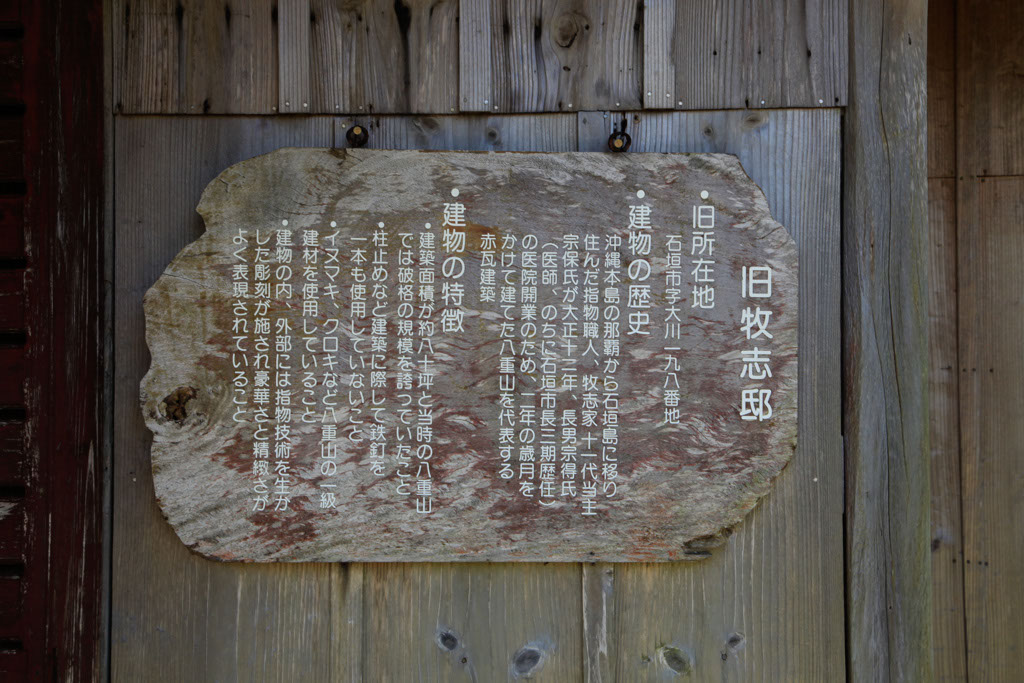 旧牧志邸
・旧所在地
石垣市字大川一九八番地
・建物の歴史
沖縄本島の那覇から石垣島に移り
住んだ指物職人、牧志家十一代当主
宗保氏が大正十二年、長男宗得氏
（医師、のちに石垣市長三期歴任）
の医院開業のため、二年の歳月を
かけて建てた八重山を代表する
赤瓦建築
・建物の特徴
・建築面積が約八十坪と当時の八重山
では破格の規模を誇っていたこと
・柱止めなど建築に際して鉄釘を
一本も使用していないこと
・イヌマキ、クロキなど八重山の一級
建材を使用していること
・建物の内、外部には指物技術を生か
した彫刻が施され豪華さと精緻さが
よく表現されていること